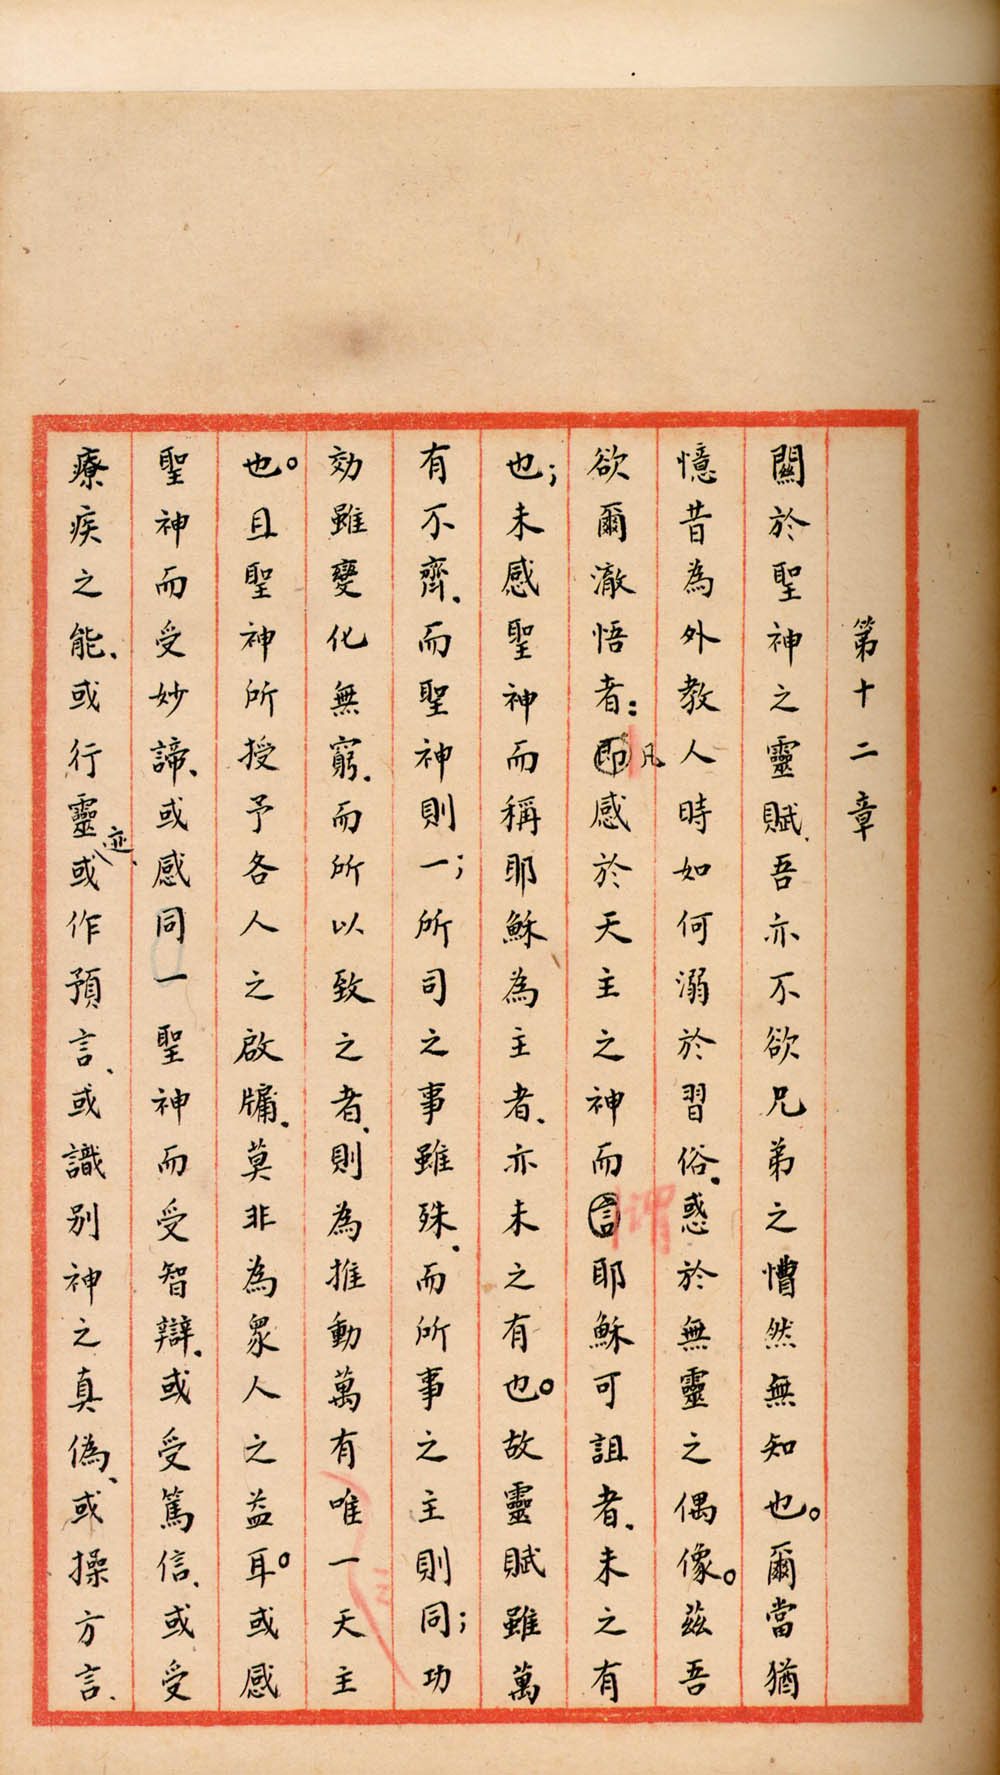 第十二章
關於聖神之靈賦、吾亦不欲兄弟之懵然無知也。爾當猶
憶昔為外教人時如何溺於習俗、惑於無靈之偶像。茲吾
欲爾澈悟者：即凡感於天主之神而言謂耶穌可詛者、未之有
也；未感聖神而稱耶穌為主者、亦未之有也。故靈賦雖萬
有不齊、而聖神則一；所司之事雖殊、而所事之主則同；功
効雖變化無窮、而所以致之者、則為推動萬有唯一天主
也。且聖神所授予各人之啟牖、莫非為眾人之益耳。或感
聖神而受妙諦、或感同一聖神而受智辯、或受篤信、或受
療疾之能、或行靈迹、或作預言、或識別神之真偽、或操方言、